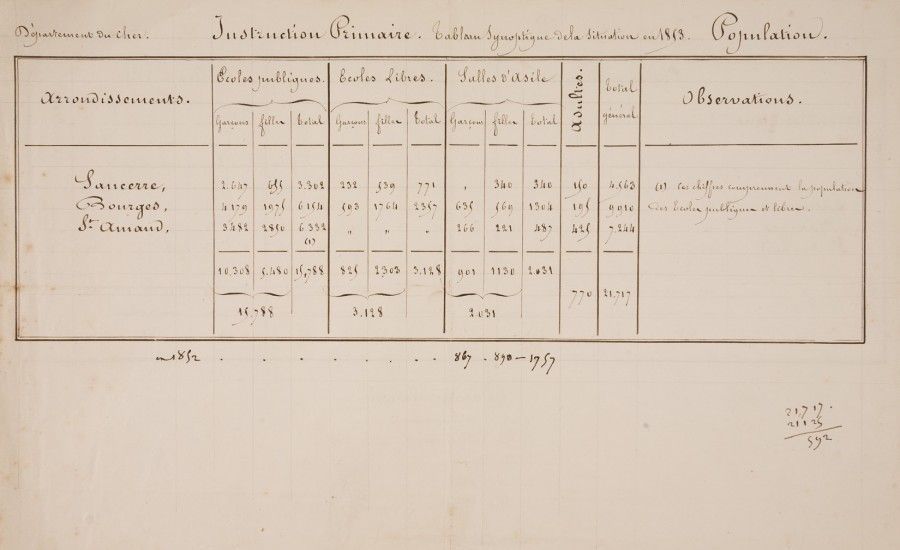 Département du Cher. Instruction Primaire. Tableau Synoptique de la Situation en 1853. Population.
Arrondissements. Ecoles publiques. Ecoles Libres. Salles d'Asile Adultes. Total général Observations.
Garçons filles Total Garçons filles Total Garçons filles Total
Sancerre, 2.647 655 3.302 232 539 771 " 340 340 150 4.563 (1) Ces chiffres comprennent la population
Bourges, 4179 1975 6154 593 1764 2357 635 569 1204 195 9910 des Ecoles publiques et libres.
St. Amand, 3482 2850 6.332 " " " 266 221 487 425 7.244
(1)
10.308 5.480 15,788 825 2303 3.128 901 1130 2.031
770 21.717
15,788 3.128 2.031
en 1852 . . . . . . 867 . 890 — 1757
21.717.
21.125
592